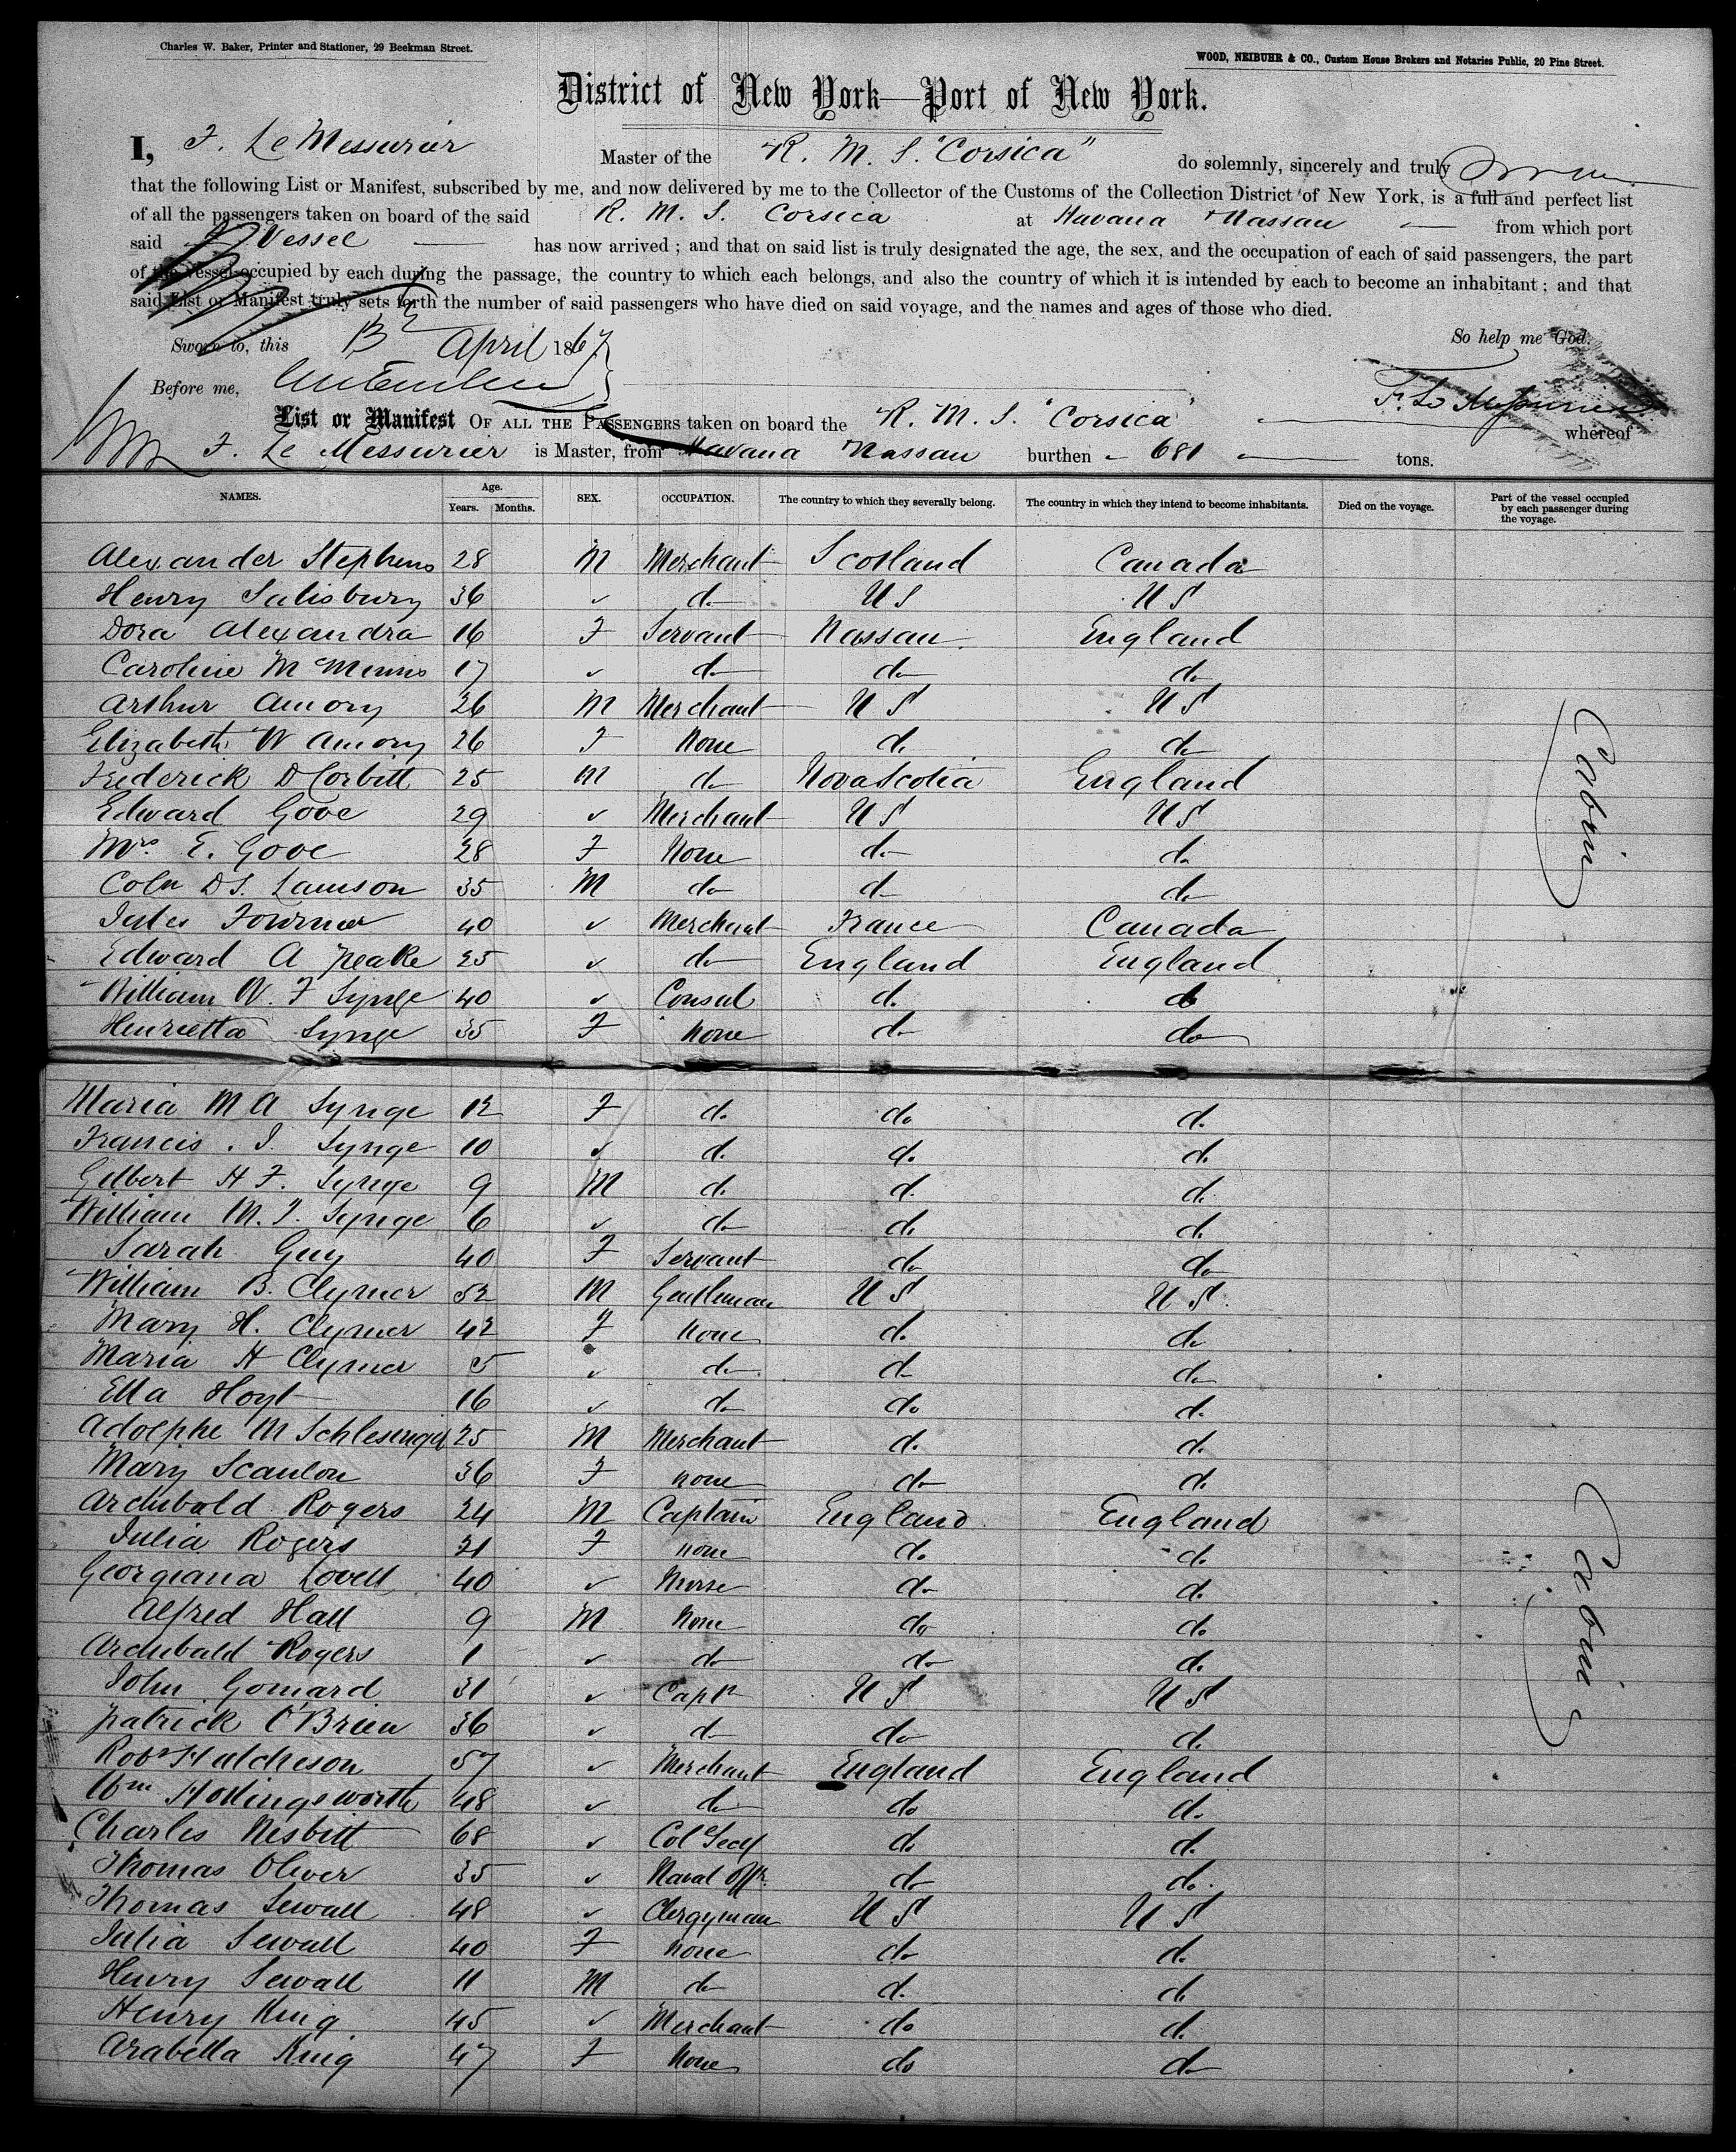 Charles W. Baker, Printer and Stationer, 29 Beekman Street.
WOOD, NEIBUHR & CO., Custom House Brokers and Notaries Public, 20 Pine Street.
District of New York—Port of New York.
I, F. Le Messurier Master of the R. M. S. "Corsica" do solemnly, sincerely and truly
that the following List or Manifest, subscribed by me, and now delivered by me to the Collector of the Customs of the Collection District of New York, is a full and perfect list
of all the passengers taken on board of the said R. M. S. Corsica at Havana & Nassau — from which port
said Vessel — has now arrived ; and that on said list is truly designated the age, the sex, and the occupation of each of said passengers, the part
of the vessel occupied by each during the passage, the country to which each belongs, and also the country of which it is intended by each to become an inhabitant ; and that
said List or Manifest truly sets forth the number of said passengers who have died on said voyage, and the names and ages of those who died.
So help me God.
Sworn to, this April 1867
Before me,
F. Le Messurier
List or Manifest OF ALL THE PASSENGERS taken on board the R. M. S. "Corsica" whereof
F. Le Messurier is Master, from Havana Nassau burthen - 681 — tons.
NAMES. Age. Years. Months. SEX. OCCUPATION. The country to which they severally belong. The country in which they intend to become inhabitants. Died on the voyage. Part of the vessel occupied by each passenger during the voyage.
Alexander Stephens 28 M Merchant Scotland Canada
Henry Salisbury 36 ✓ do U S U S
Dora Alexandra 16 F Servant Nassau England
Caroline McMinnis 17 ✓ do do do
Arthur Amory 26 M Merchant U S U S
Elizabeth W Amory 26 F None do do
Frederick D Corbitt 25 M do Nova Scotia England
Edward Gove 29 ✓ Merchant U S U S
Mrs. E. Gove 28 F None do do
Coln D S. Lamson 35 M do do do
Jules Fournier 40 ✓ Merchant France Canada
Edward A Peake 25 ✓ do England England
William W. F Synge 40 ✓ Consul do do
Henrietta Synge 35 F None do do
Cabin
Maria M A Synge 12 F do do do
Francis . J. Synge 10 ✓ do do do
Gilbert H F. Synge 9 M do do do
William M. J. Synge 6 ✓ do do do
Sarah Guy 40 F Servant do do
William B. Clymer 52 M Gentleman U S U S.
Mary H. Clymer 42 F None do do
Maria H Clymer 5 ✓ do do do
Ella Hoyt 16 ✓ do do do
Adolphe M Schlesinger 25 M Merchant do do
Mary Scanlon 36 F None do do
Archibald Rogers 24 M Captain England England
Julia Rogers 21 F None do do
Georgiana Lovell 40 ✓ Nurse do do
Alfred Hall 9 M None do do
Archibald Rogers 1 ✓ do do do
John Gomard 31 ✓ Captn U S U S
Patrick O'Brien 36 ✓ do do do
Robt Hutcheson 57 ✓ Merchant England England
Wm Hollingsworth 48 ✓ do do do
Charles Nesbitt 68 ✓ Col Secy do do
Thomas Oliver 35 ✓ Naval Offr. do do
Thomas Sewall 48 ✓ Clergyman U S U S
Julia Sewall 40 F None do do
Henry Sewall 11 M do do do
Henry King 45 ✓ Merchant do do
Arabella King 47 F None do do
Cabin